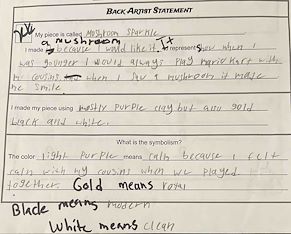 BACK ARTIST STATEMENT
My piece is called Mushroom Sparkle
a mushroom
I made because I would like it. It represents how when I
was younger I would always play mario kart with
my cousins. when I saw a mushroom it made
me smile
I made my piece using mostly purple clay but also gold
black and white.
What is the symbolism?
The color light purple means calm because I felt
calm with my cousins when we played
together. Gold means royal
Black means modern
White means clean